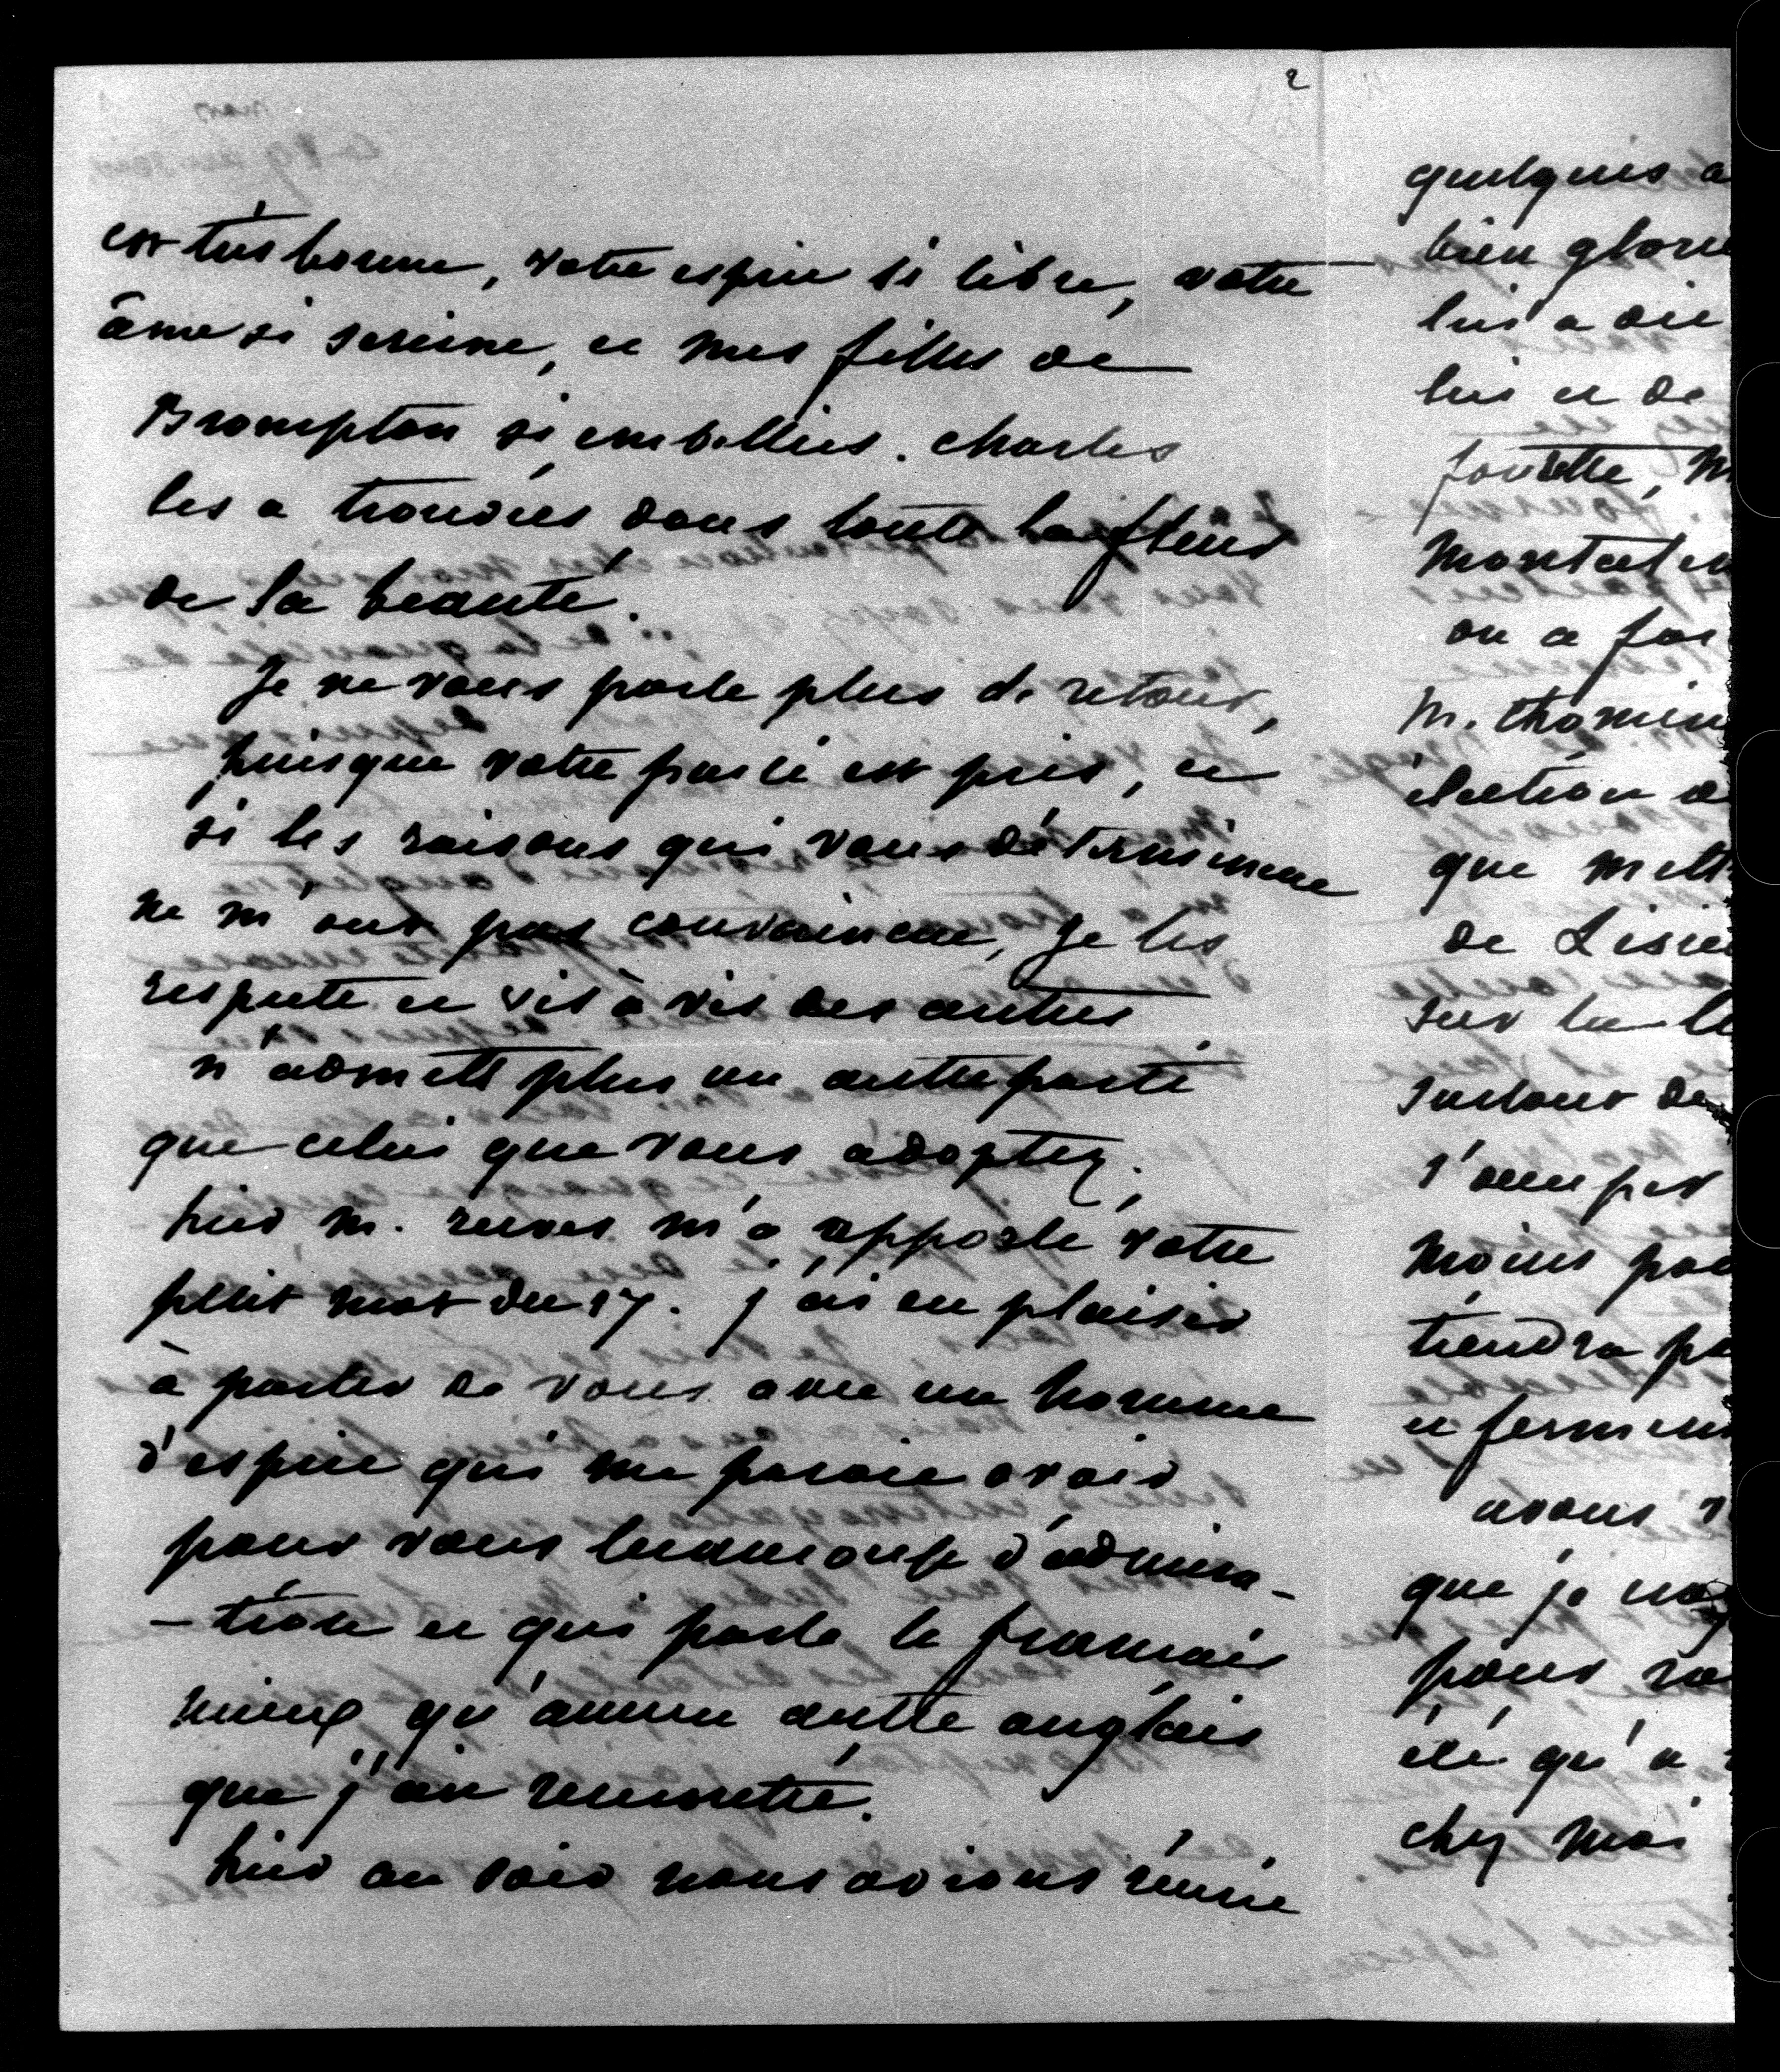 2
est très bonne, votre esprit si libre, votre
âme si sereine, et mes filles de
Brompton si embellies. Charles
les a trouvées dans toute la fleur
de la beauté.
Je ne vous parle plus de retour,
puisque votre parti est pris, et
si les raisons qui vous déterminent
ne m'ont pas convaincue, je les
respecte et vis à vis des autres
n'admets plus un autre parti
que celui que vous adoptez.
hier m. reeves m'a apporté votre
petit mot du 17. j'ai eu plaisir
à parler de vous avec un homme
d'esprit qui me parait avoir
pour vous beaucoup d'admira-
-tion et qui parle le français
mieux qu'aucun autre anglais
que j'ai rencontré.
hier au soir nous avions réunie
quelques a
bien glorie
lui a dit
lui et de
M
Montcal
on a
M. thomin
élection d
que mett
de Lisieu
sur la
surtout de
s'occuper
moins pa
tiendra pa
et ferm
avons
que je
pour
été qu'a
chez moi